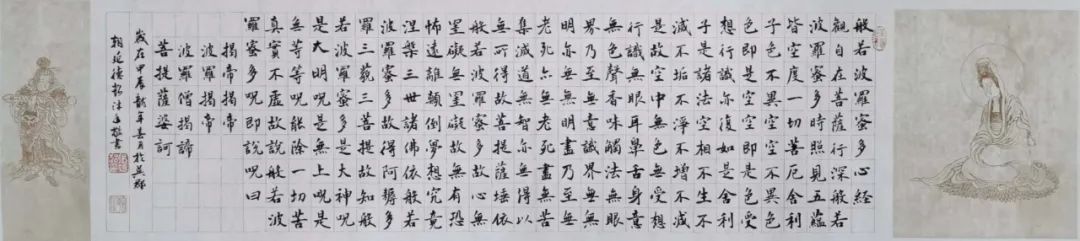 般若波羅蜜多心經
觀自在菩薩行深般若
波羅蜜多時照見五蘊
皆空度一切苦厄舍利
子色不異空空不異色
色即是空空即是色受
想行識亦復如是舍利
子是諸法空相不生不
滅不垢不淨不增不減
是故空中無色無受想
行識無眼耳鼻舌身意
無色聲香味觸法無眼
界乃至無意識界無無
明亦無無明盡乃至無
老死亦無老死盡無苦
集滅道無智亦無得以
無所得故菩提薩埵依
般若波羅蜜多故心無
罣礙無罣礙故無有恐
怖遠離顛倒夢想究竟
涅槃三世諸佛依般若
波羅蜜多故得阿耨多
羅三藐三菩提故知般
若波羅蜜多是大神呪
是大明呪是無上呪是
無等等呪能除一切苦
真實不虛故說般若波
羅蜜多呪即說呪曰
揭帝揭帝
波羅揭帝
波羅僧揭諦
菩提薩婆訶
歲在甲辰龍年春月於
沐手敬書